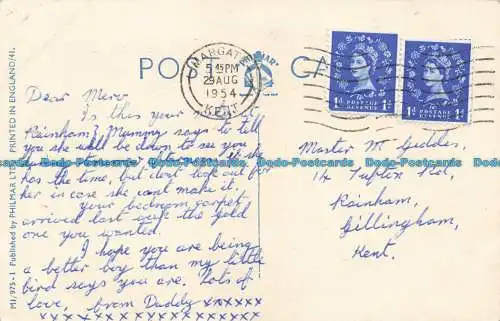 POST CARD
MARGATE
5 45 PM
29 AUG
1954
KENT
1d POSTAGE REVENUE 1d
1d POSTAGE REVENUE 1d
PRINTED IN ENGLAND/41.
Published by PHILMAR LTD
M1/975-1
Dear Merv
Is this your
Rainham? Mummy says to tell
you she will be down to see you
if she
has the time, but don't look out for
her in case she cant make it.
Your bedroom carpet
arrived last week the gold
one you wanted.
I hope you are being
a better boy than my little
bird says you are. Lots of
love, from Daddy xxxxxx
xxxxxxxxxxxxx
Master M Geddes,
14
Rainham,
Gillingham,
Kent.
Dodo-Postcards Dodo-Postcards Dodo-Postcards Dodo-Postcards